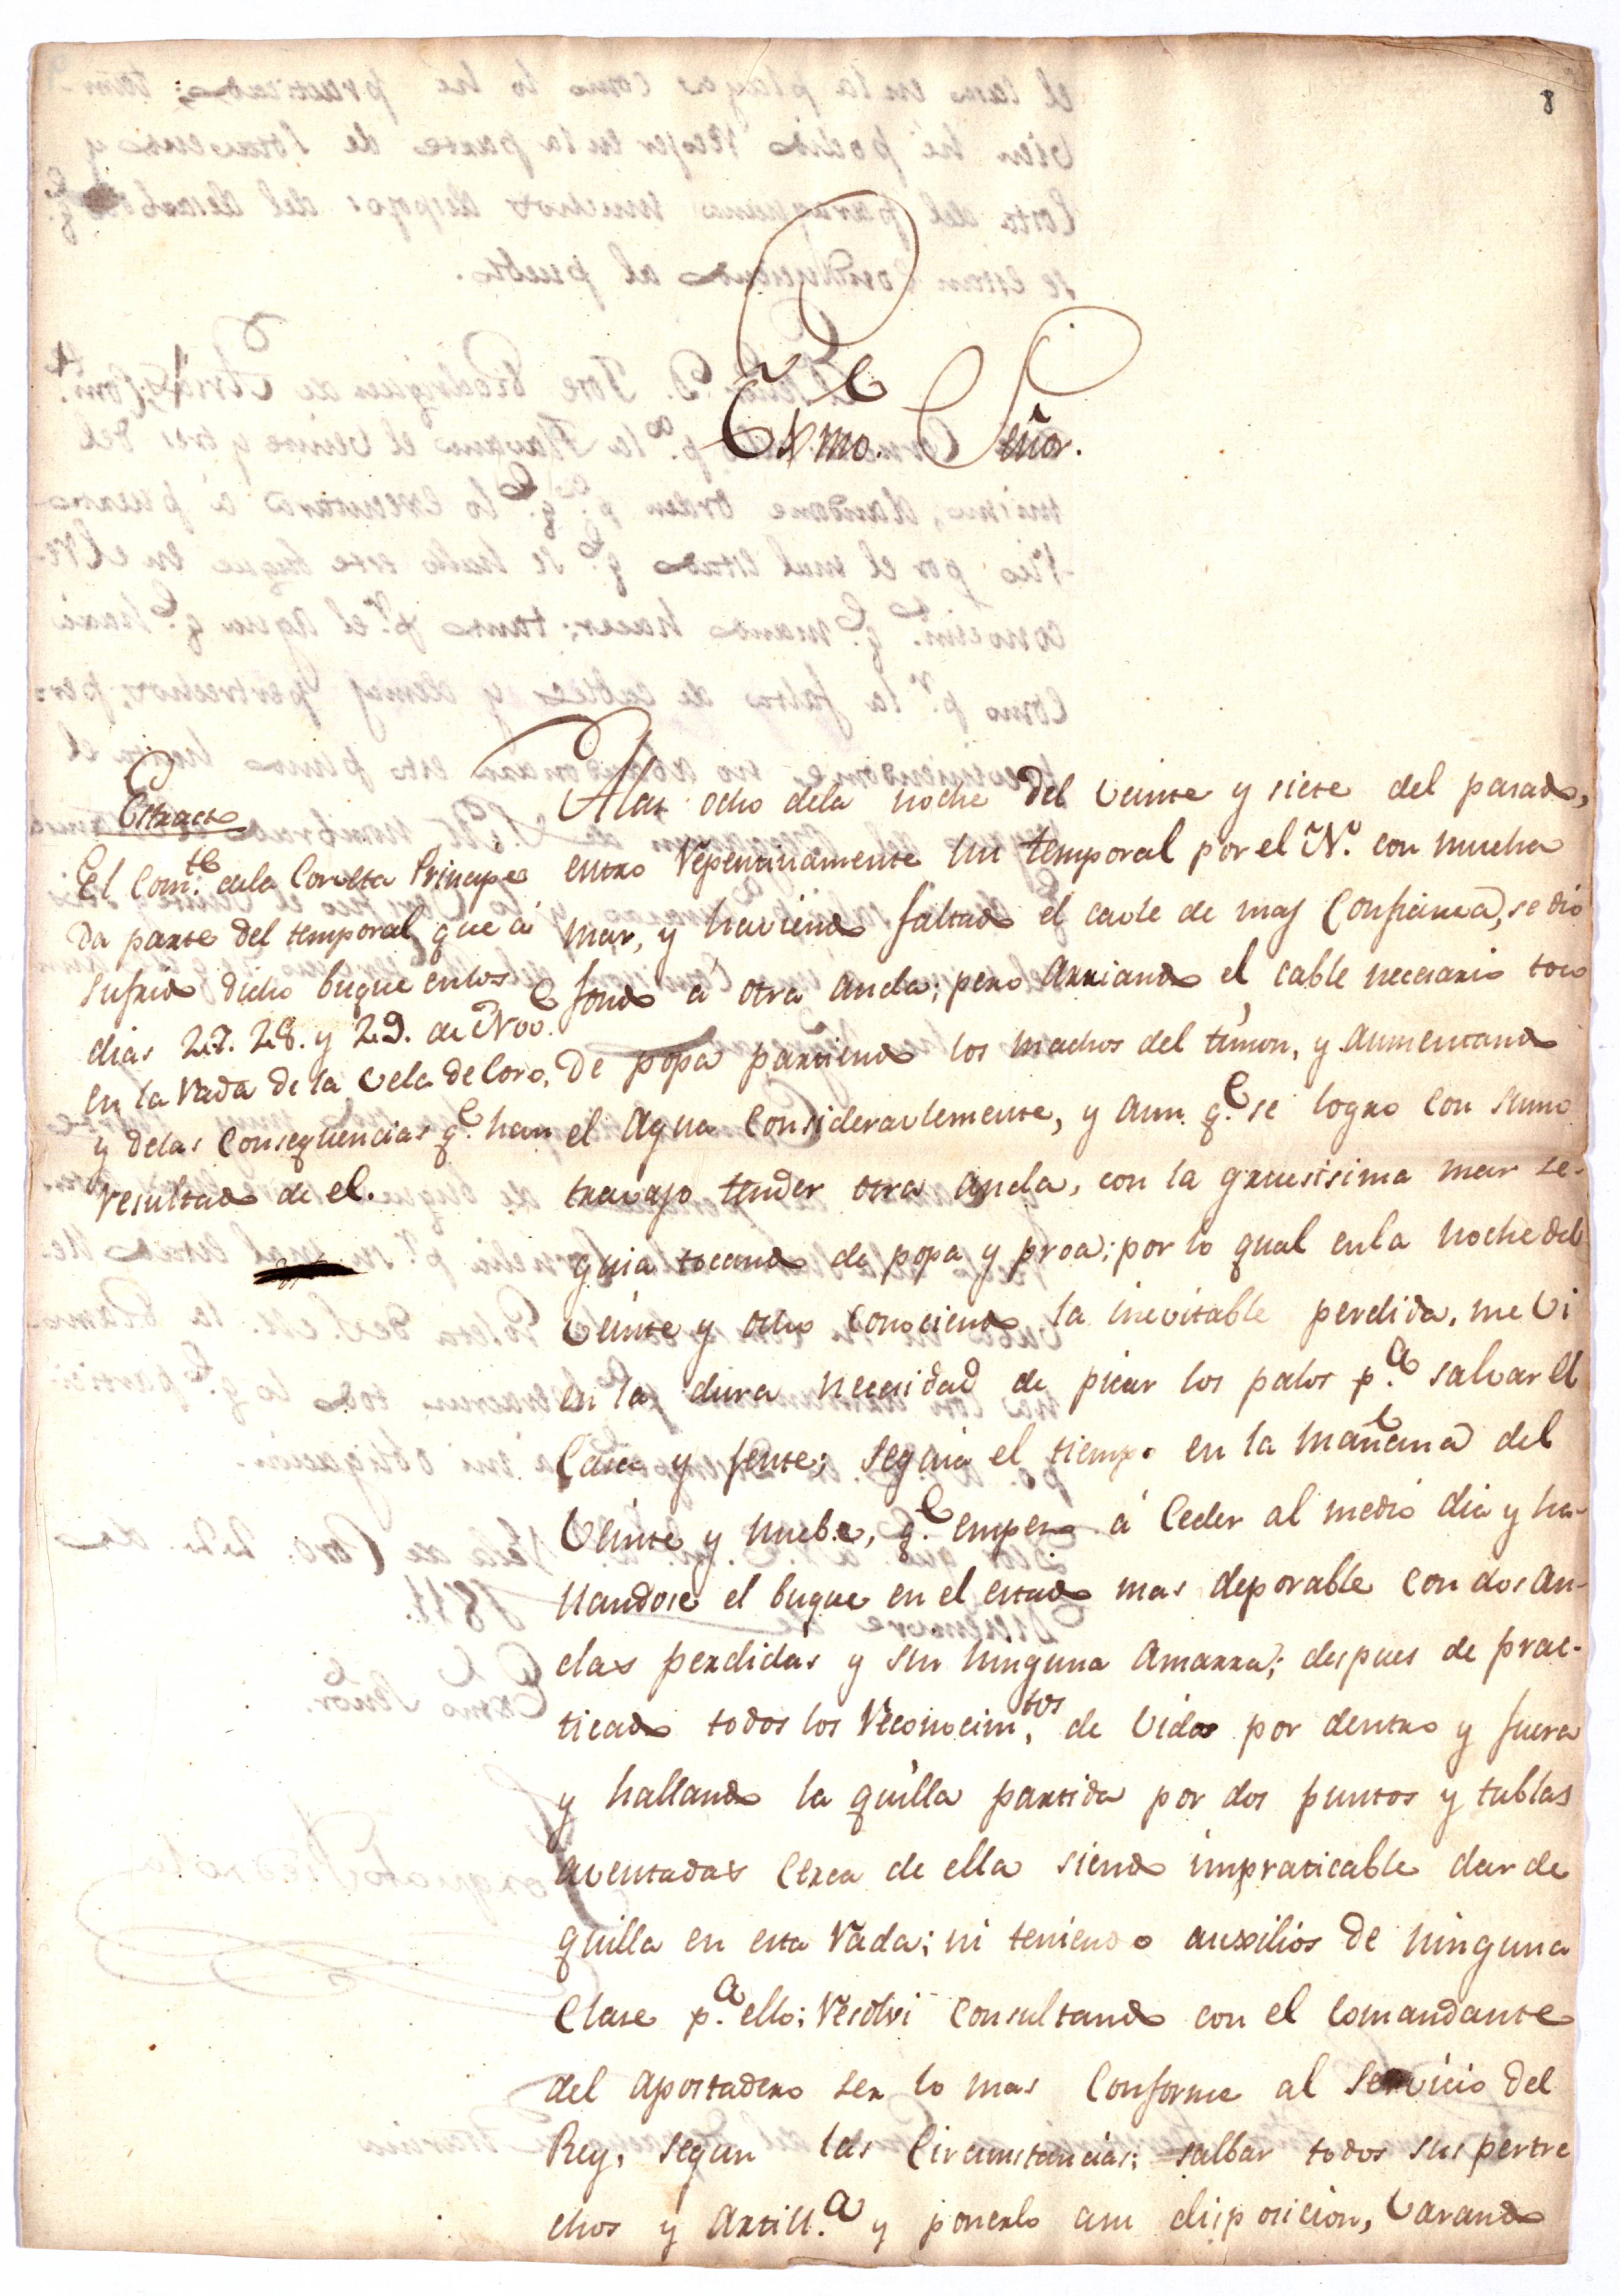 8
Exmo. Señor.
Extracto
El Com.te dela Corveta Principe
da parte del temporal que á
sufrido dicho buque en los
dias 27. 28. y 29. de Nov.e
en la Rada de la Vela de Coro,
y delas Consequencias q.e han
resultado de el.
Alas ocho dela noche del veinte y siete del pasado,
entro repentinamente un temporal por el N. con mucha
mar, y haviendo faltado el cavle de mas Confianza, se dió
fondo á otra ancla; pero arriando el cable necesario toco
de popa partiendo los machos del timon, y aumentando
el Agua Consideravlemente, y aun q.e se logro con sumo
travajo tender otra ancla, con la gruesisima mar se-
guia tocando de popa y proa; por lo qual en la noche del
veinte y ocho Conociendo la inevitable perdida, me vi
en la dura necesidad de picar los palos p.a salvar el
Casco y gente; seguia el tiempo en la mañana del
veinte y nuebe, q.e empezo á Ceder al medio dia y ha-
llandose el buque en el estado mas deporable con dos an-
clas perdidas y sin ninguna Amarra; despues de prac-
ticado todos los reconocim.tos de vidos por dentro y fuera
y hallando la quilla partida por dos puntos y tablas
aventadas Cerca de ella siendo impraticable dar de
quilla en esta Rada; ni teniendo auxilios de ninguna
Clase p.a ello; resolvi Consultando con el Comandante
del Apostadero ser lo mas Conforme al servicio del
Rey, segun las Circunstancias; salbar todos sus pertre
chos y Artill.a y ponerlo asu disposicion, varando